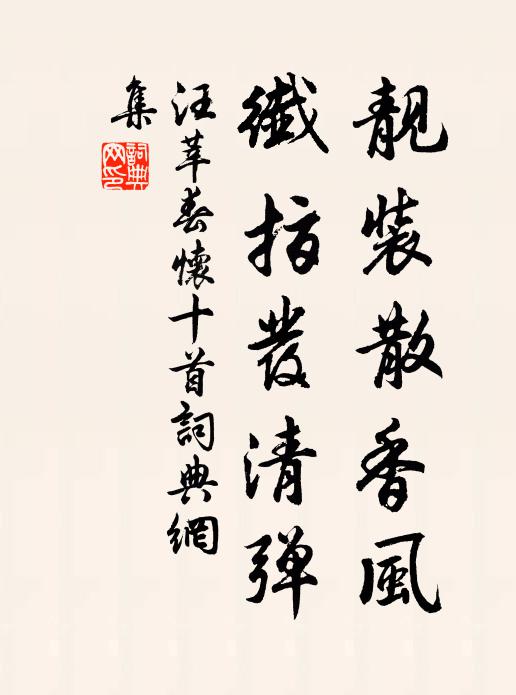 靚裝散香風
纖指發清彈
汪莘春懷十首詞典網
集
詞典網印